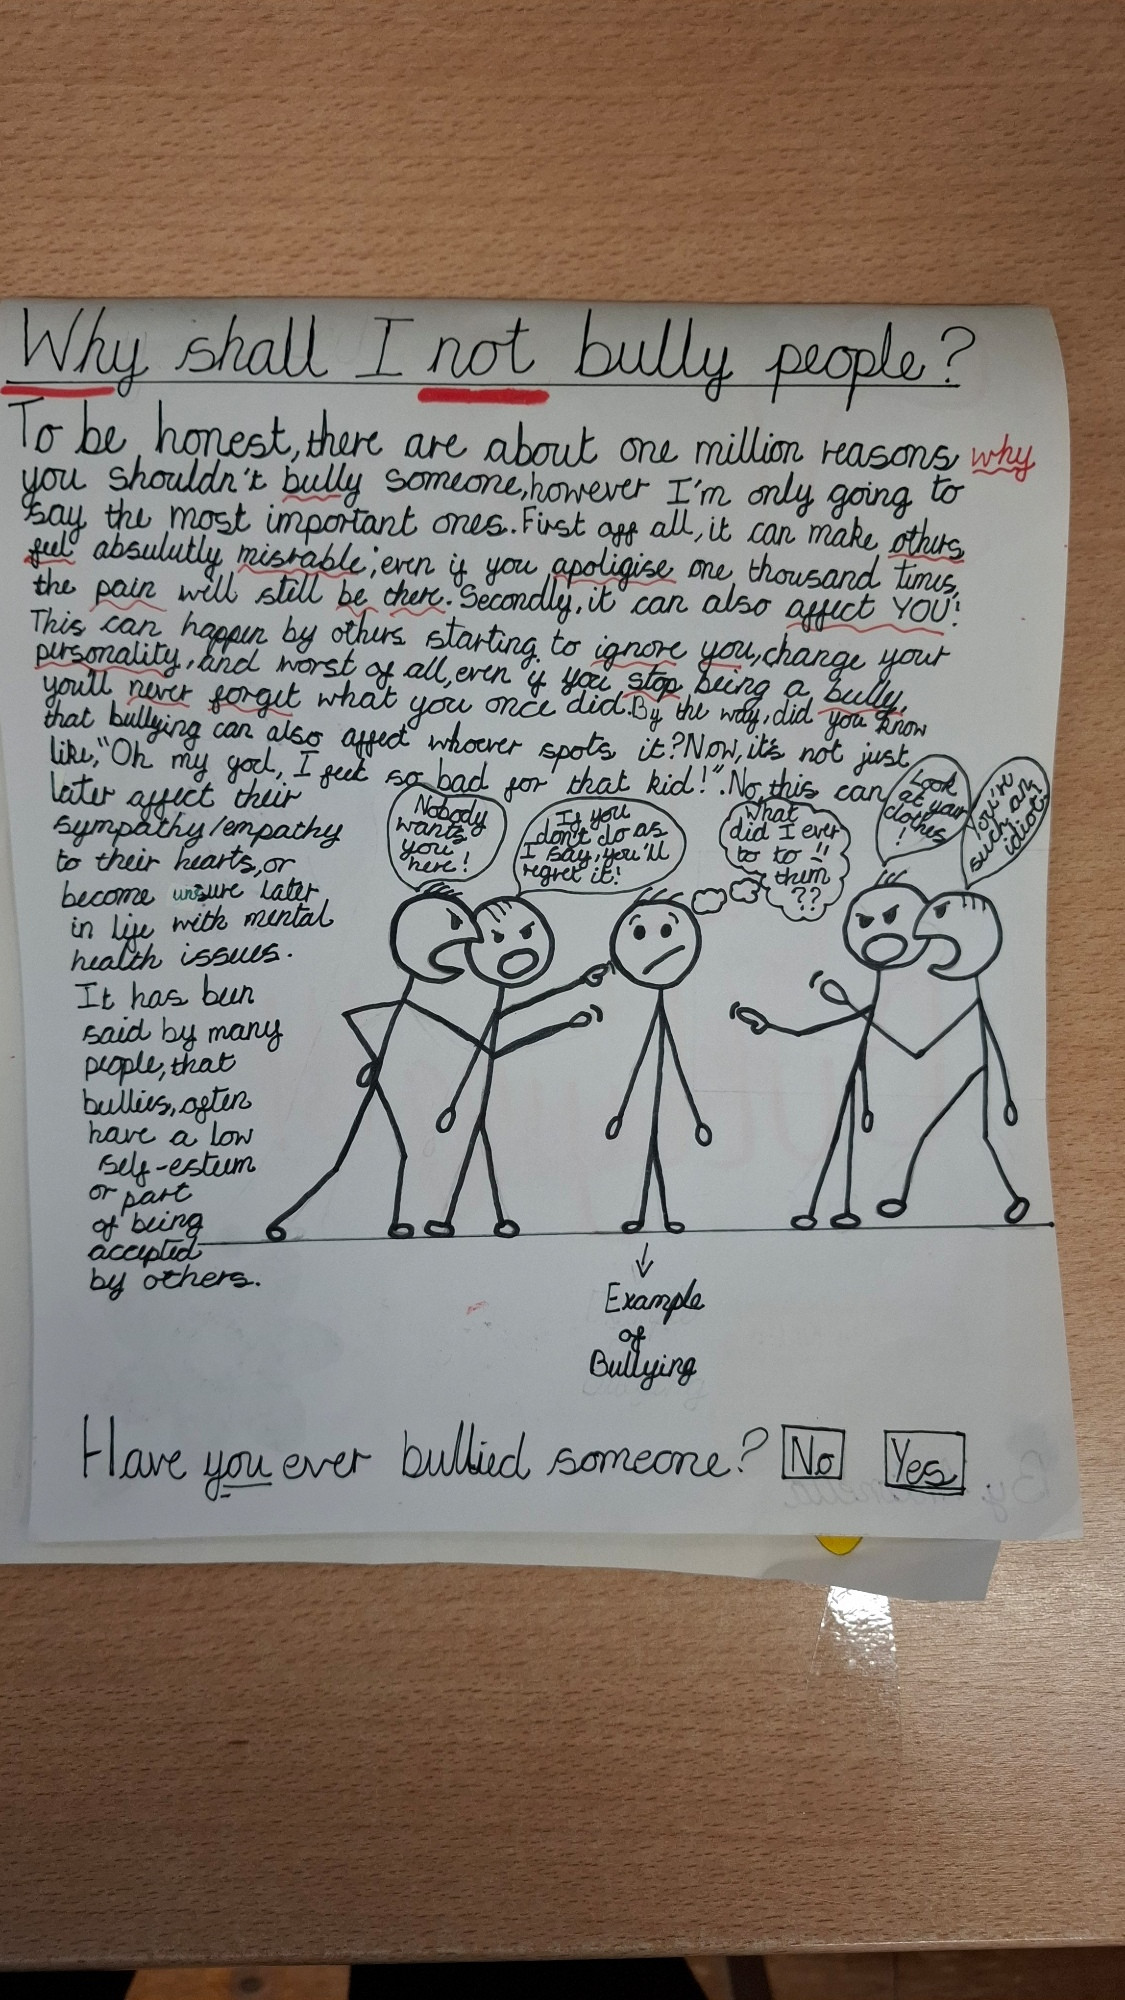 Why shall I not bully people?
To be honest, there are about one million reasons why
you shouldn't bully someone, however I'm only going to
say the most important ones. First off all, it can make others
feel absulutly misrable; even if you apoligise one thousand times,
the pain will still be there. Secondly, it can also affect YOU!
This can happen by others starting to ignore you, change your
personality, and worst of all, even if you stop being a bully,
you'll never forget what you once did. By the way, did you know
that bullying can also affect whoever spots it? Now, it's not just
like, "Oh my god, I feel so bad for that kid!". No, this can
later affect their
sympathy/empathy
to their hearts, or
become unsure later
in life with mental
health issues.
It has been
said by many
people, that
bullies, often
have a low
self-esteem
or part
of being
accepted
by others.
Nobody
wants
you
here!
If you
don't do as
I say, you'll
regret it!
What
did I ever
to to !!
them
??
Look
at your
clothes
!
You're
such an
idiot!
Example
of
Bullying
Have you ever bullied someone? No Yes
By: